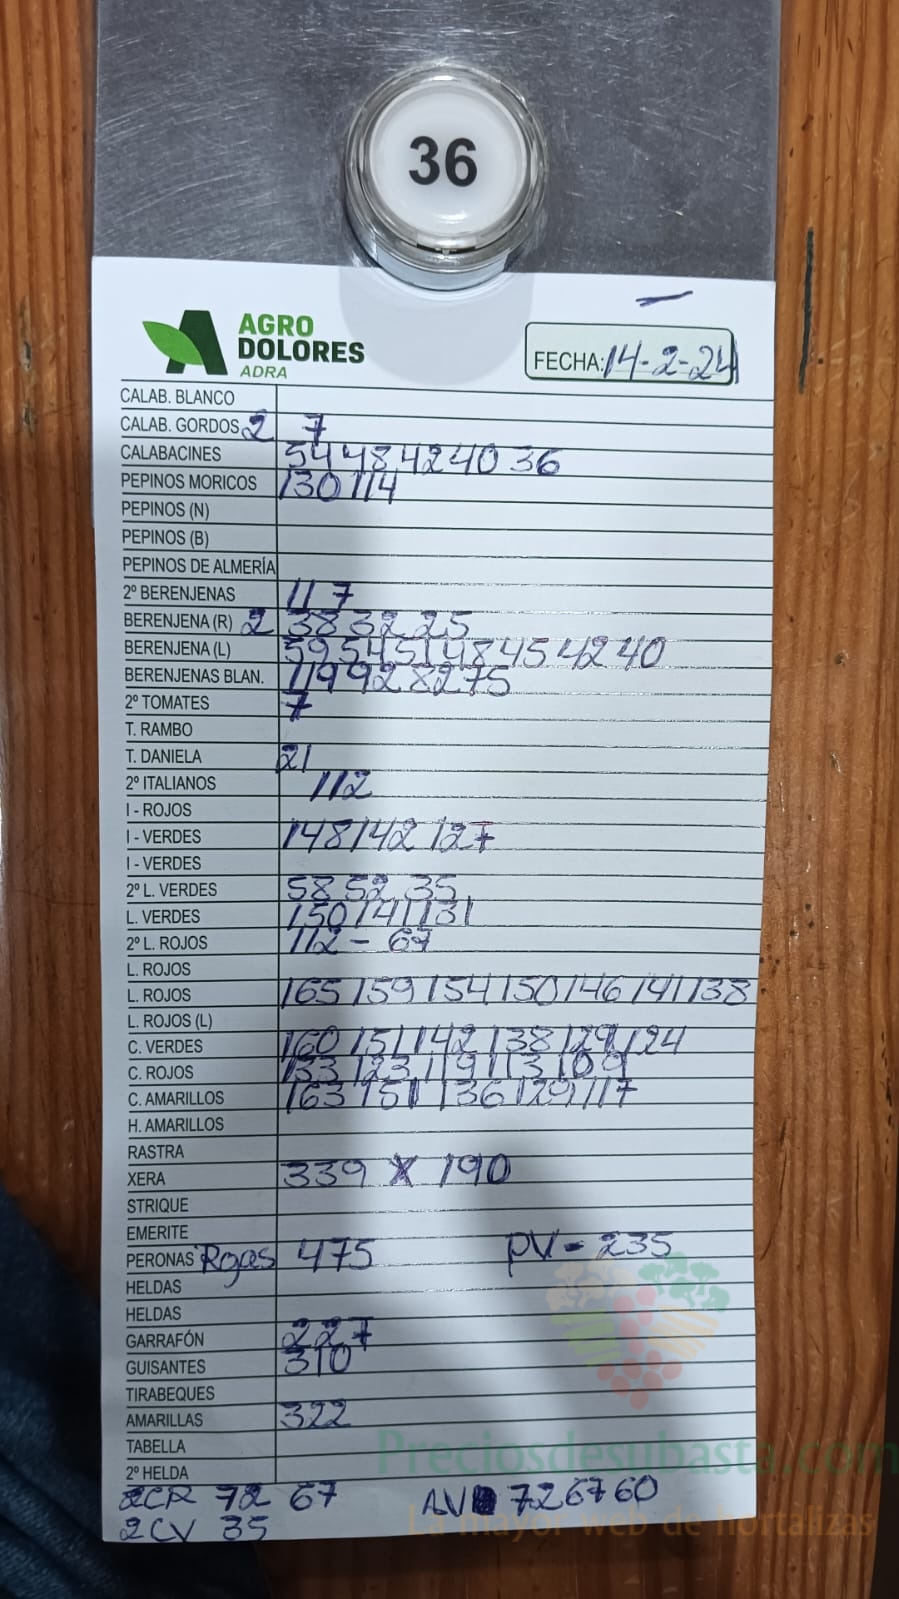 36
AGRO
DOLORES
ADRA
FECHA: 14-2-24
CALAB. BLANCO
CALAB. GORDOS 2 7
CALABACINES 54 48 42 40 36
PEPINOS MORICOS 130 114
PEPINOS (N)
PEPINOS (B)
PEPINOS DE ALMERÍA
2º BERENJENAS 11 7
BERENJENA (R) 2 38 32 25
BERENJENA (L) 59 54 51 48 45 42 40
BERENJENAS BLAN. 119 92 82 75
2º TOMATES 7
T. RAMBO
T. DANIELA 21
2º ITALIANOS 112
I - ROJOS
I - VERDES 148 142 127
I - VERDES
2º L. VERDES 58 52 35
L. VERDES 150 141 131
2º L. ROJOS 112 - 67
L. ROJOS
L. ROJOS 165 159 154 150 146 141 138
L. ROJOS (L)
C. VERDES 160 151 142 138 129 124
C. ROJOS 133 123 119 113 109
C. AMARILLOS 163 151 136 129 117
H. AMARILLOS
RASTRA
XERA 339 X 190
STRIQUE
EMERITE
PERONAS Rojas 475 PV - 235
HELDAS
HELDAS
GARRAFÓN 227
GUISANTES 310
TIRABEQUES
AMARILLAS 322
TABELLA
2º HELDA
2CR 72 67 AV 72 67 60
2CV 35
Preciosdesubasta.com
La mayor web de hortalizas